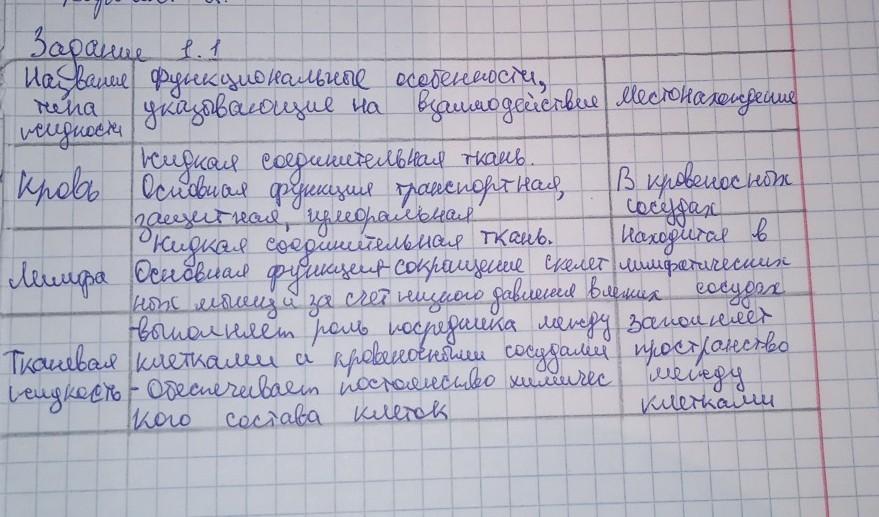 Задание 1.1
Название функциональные особенности,
типа указывающие на взаимодействие местонахождение
жидкости
жидкая соединительная ткань.
Кровь Основная функция транспортная, В кровеносных
защитная, гуморальная сосудах
Жидкая соединительная ткань. Находится в
Лимфа Основная функция - сокращение скелет лимфатических
ных мышц и за счет низкого давления в сосудах
- выполняет роль посредника между заполняет
Тканевая клетками и кровеносными сосудами пространство
жидкость - Обеспечивает постоянство химичес между
кого состава клеток клетками